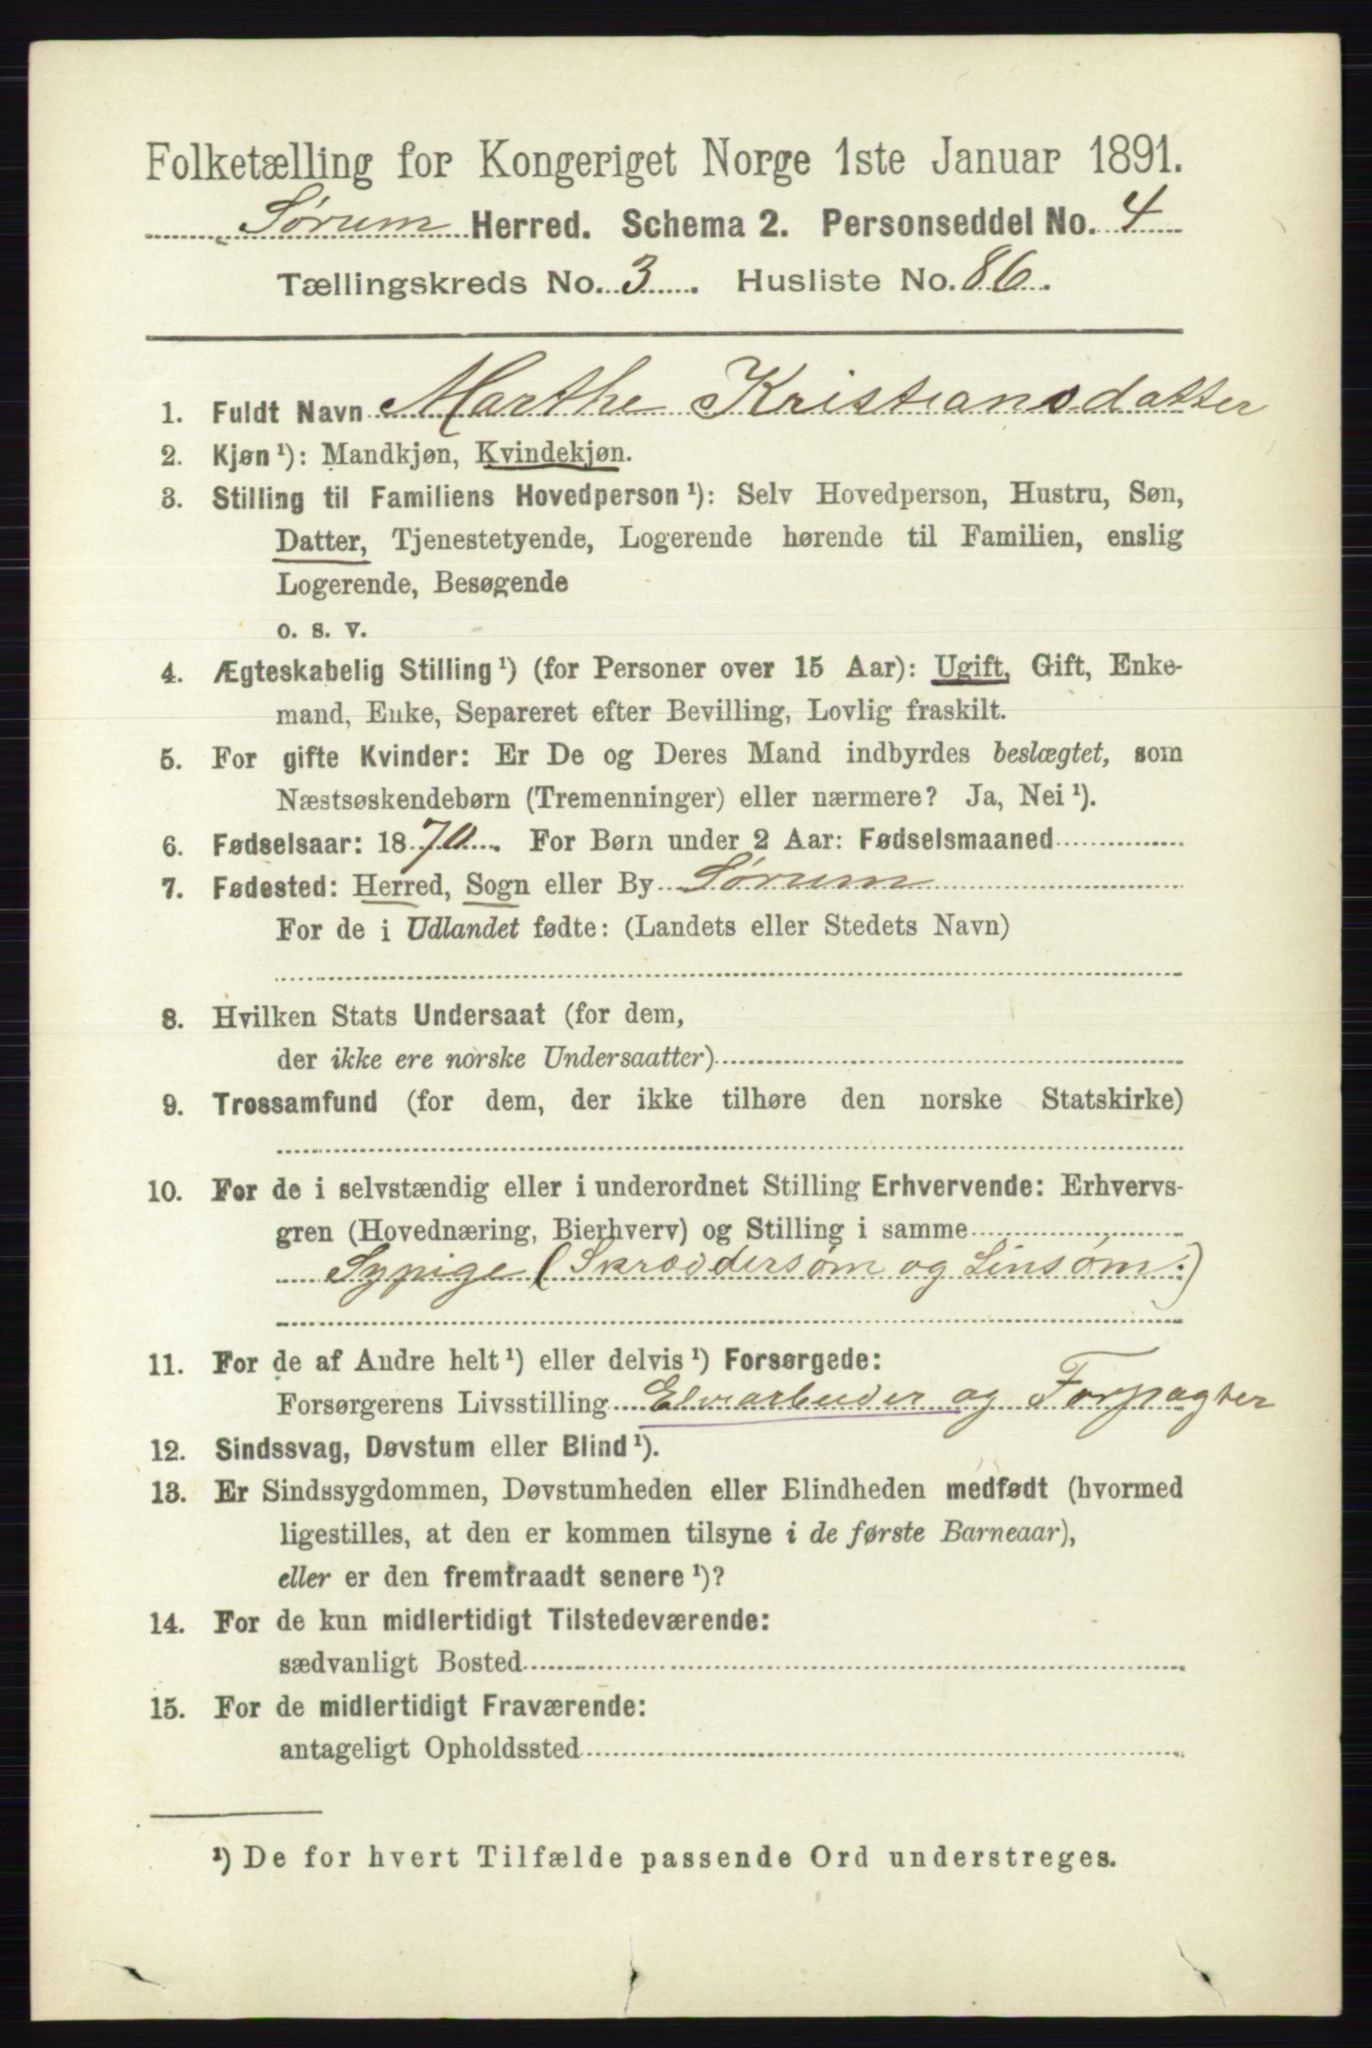 Folketælling for Kongeriget Norge 1ste Januar 1891.
Sørum Herred. Schema 2. Personseddel No. 4
Tællingskreds No. 3. Husliste No. 86.
1. Fuldt Navn Marthe Kristiansdatter
2. Kjøn¹): Mandkjøn, Kvindekjøn.
3. Stilling til Familiens Hovedperson¹): Selv Hovedperson, Hustru, Søn,
Datter, Tjenestetyende, Logerende hørende til Familien, enslig
Logerende, Besøgende
o. s. v.
4. Ægteskabelig Stilling¹) (for Personer over 15 Aar): Ugift, Gift, Enke-
mand, Enke, Separeret efter Bevilling, Lovlig fraskilt.
5. For gifte Kvinder: Er De og Deres Mand indbyrdes beslægtet, som
Næstsøskendebørn (Tremenninger) eller nærmere? Ja, Nei¹).
6. Fødselsaar: 1870. For Børn under 2 Aar: Fødselsmaaned
7. Fødested: Herred, Sogn eller By Sørum
For de i Udlandet fødte: (Landets eller Stedets Navn)
8. Hvilken Stats Undersaat (for dem,
der ikke ere norske Undersaatter)
9. Trossamfund (for dem, der ikke tilhøre den norske Statskirke)
10. For de i selvstændig eller i underordnet Stilling Erhvervende: Erhvervs-
gren (Hovednæring, Bierhverv) og Stilling i samme
Sypige (Skræddersøm og Linsøm.)
11. For de af Andre helt¹) eller delvis¹) Forsørgede:
Forsørgerens Livsstilling Elvearbeider og Forpagter
12. Sindssvag, Døvstum eller Blind¹).
13. Er Sindssygdommen, Døvstumheden eller Blindheden medfødt (hvormed
ligestilles, at den er kommen tilsyne i de første Barneaar),
eller er den fremtraadt senere¹)?
14. For de kun midlertidigt Tilstedeværende:
sædvanligt Bosted
15. For de midlertidigt Fraværende:
antageligt Opholdssted
¹) De for hvert Tilfælde passende Ord understreges.